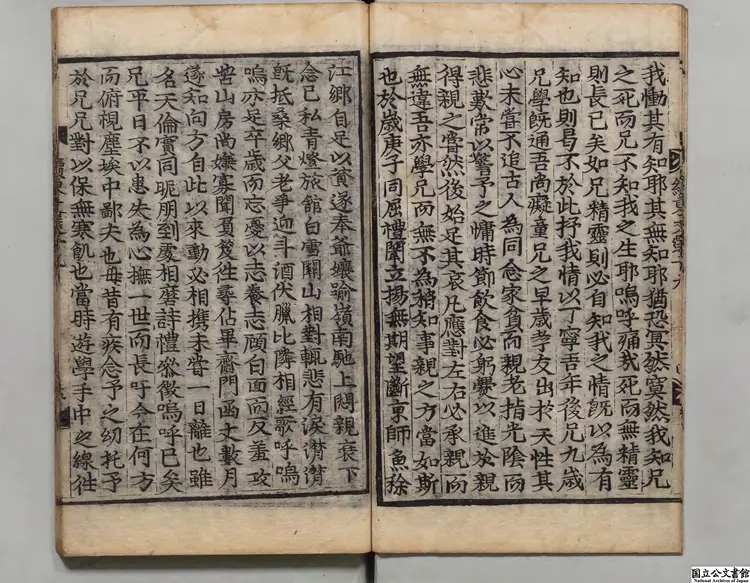 我慟其有知耶其無知耶猶恐冥然寞然我知兄
之死而兄不知我之生耶嗚呼痛哉死而無精靈
則長已矣如兄精靈則必自知我之情旣以為有
知也則曷不於此抒我情以丁寧吾年後兄九歲
兄學旣通吾尚癡童兄之早歲孝友出於天性其
心未嘗不追古人為同念家貧而親老指光陰而
悲歎常以警予之慵時節飲食必躬爨以進於親
得親之嘗然後始足其哀乃應對左右必承親而
無違吾亦學兄而無不為稍知事親之方當如斯
也於歲庚子同屈禮闈立揚無期望斷東師魚稌
江鄉自足以貧遂奉爺孃踰嶺南馳上閔親衰下
念己私青燈旅館白雪關山相對輒悲有淚潸潸
旣抵桑鄉父老爭迎斗酒伏臘比隣相經歌呼嗚
嗚亦足卒歲而忘憂以志養志顧白面而反羞攻
苦山房尚嫌寡聞負笈往尋佔畢齋門函丈數月
遂知向方自此以來動必相携未嘗一日離也雖
名天倫實同昵朋到處相磨詩禮發徵嗚呼已矣
兄平日不以患失為心撫一世而長吁今在何方
而俯視塵埃中鄙夫也毋昔有疾念予之幼托予
於兄兄對以保無寒飢也當時遊學手中之線往
国立公文書館
National Archives of Japan